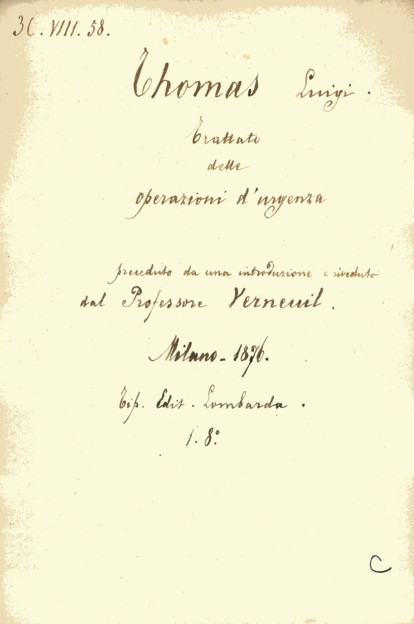 3C. VIII. 58.
Thomas Luigi.
Trattato
delle
operazioni d'urgenza
preceduto da una introduzione e riveduto
dal Professore Verneuil.
Milano - 1876.
Tip. Edit. Lombarda.
1. 8°
C